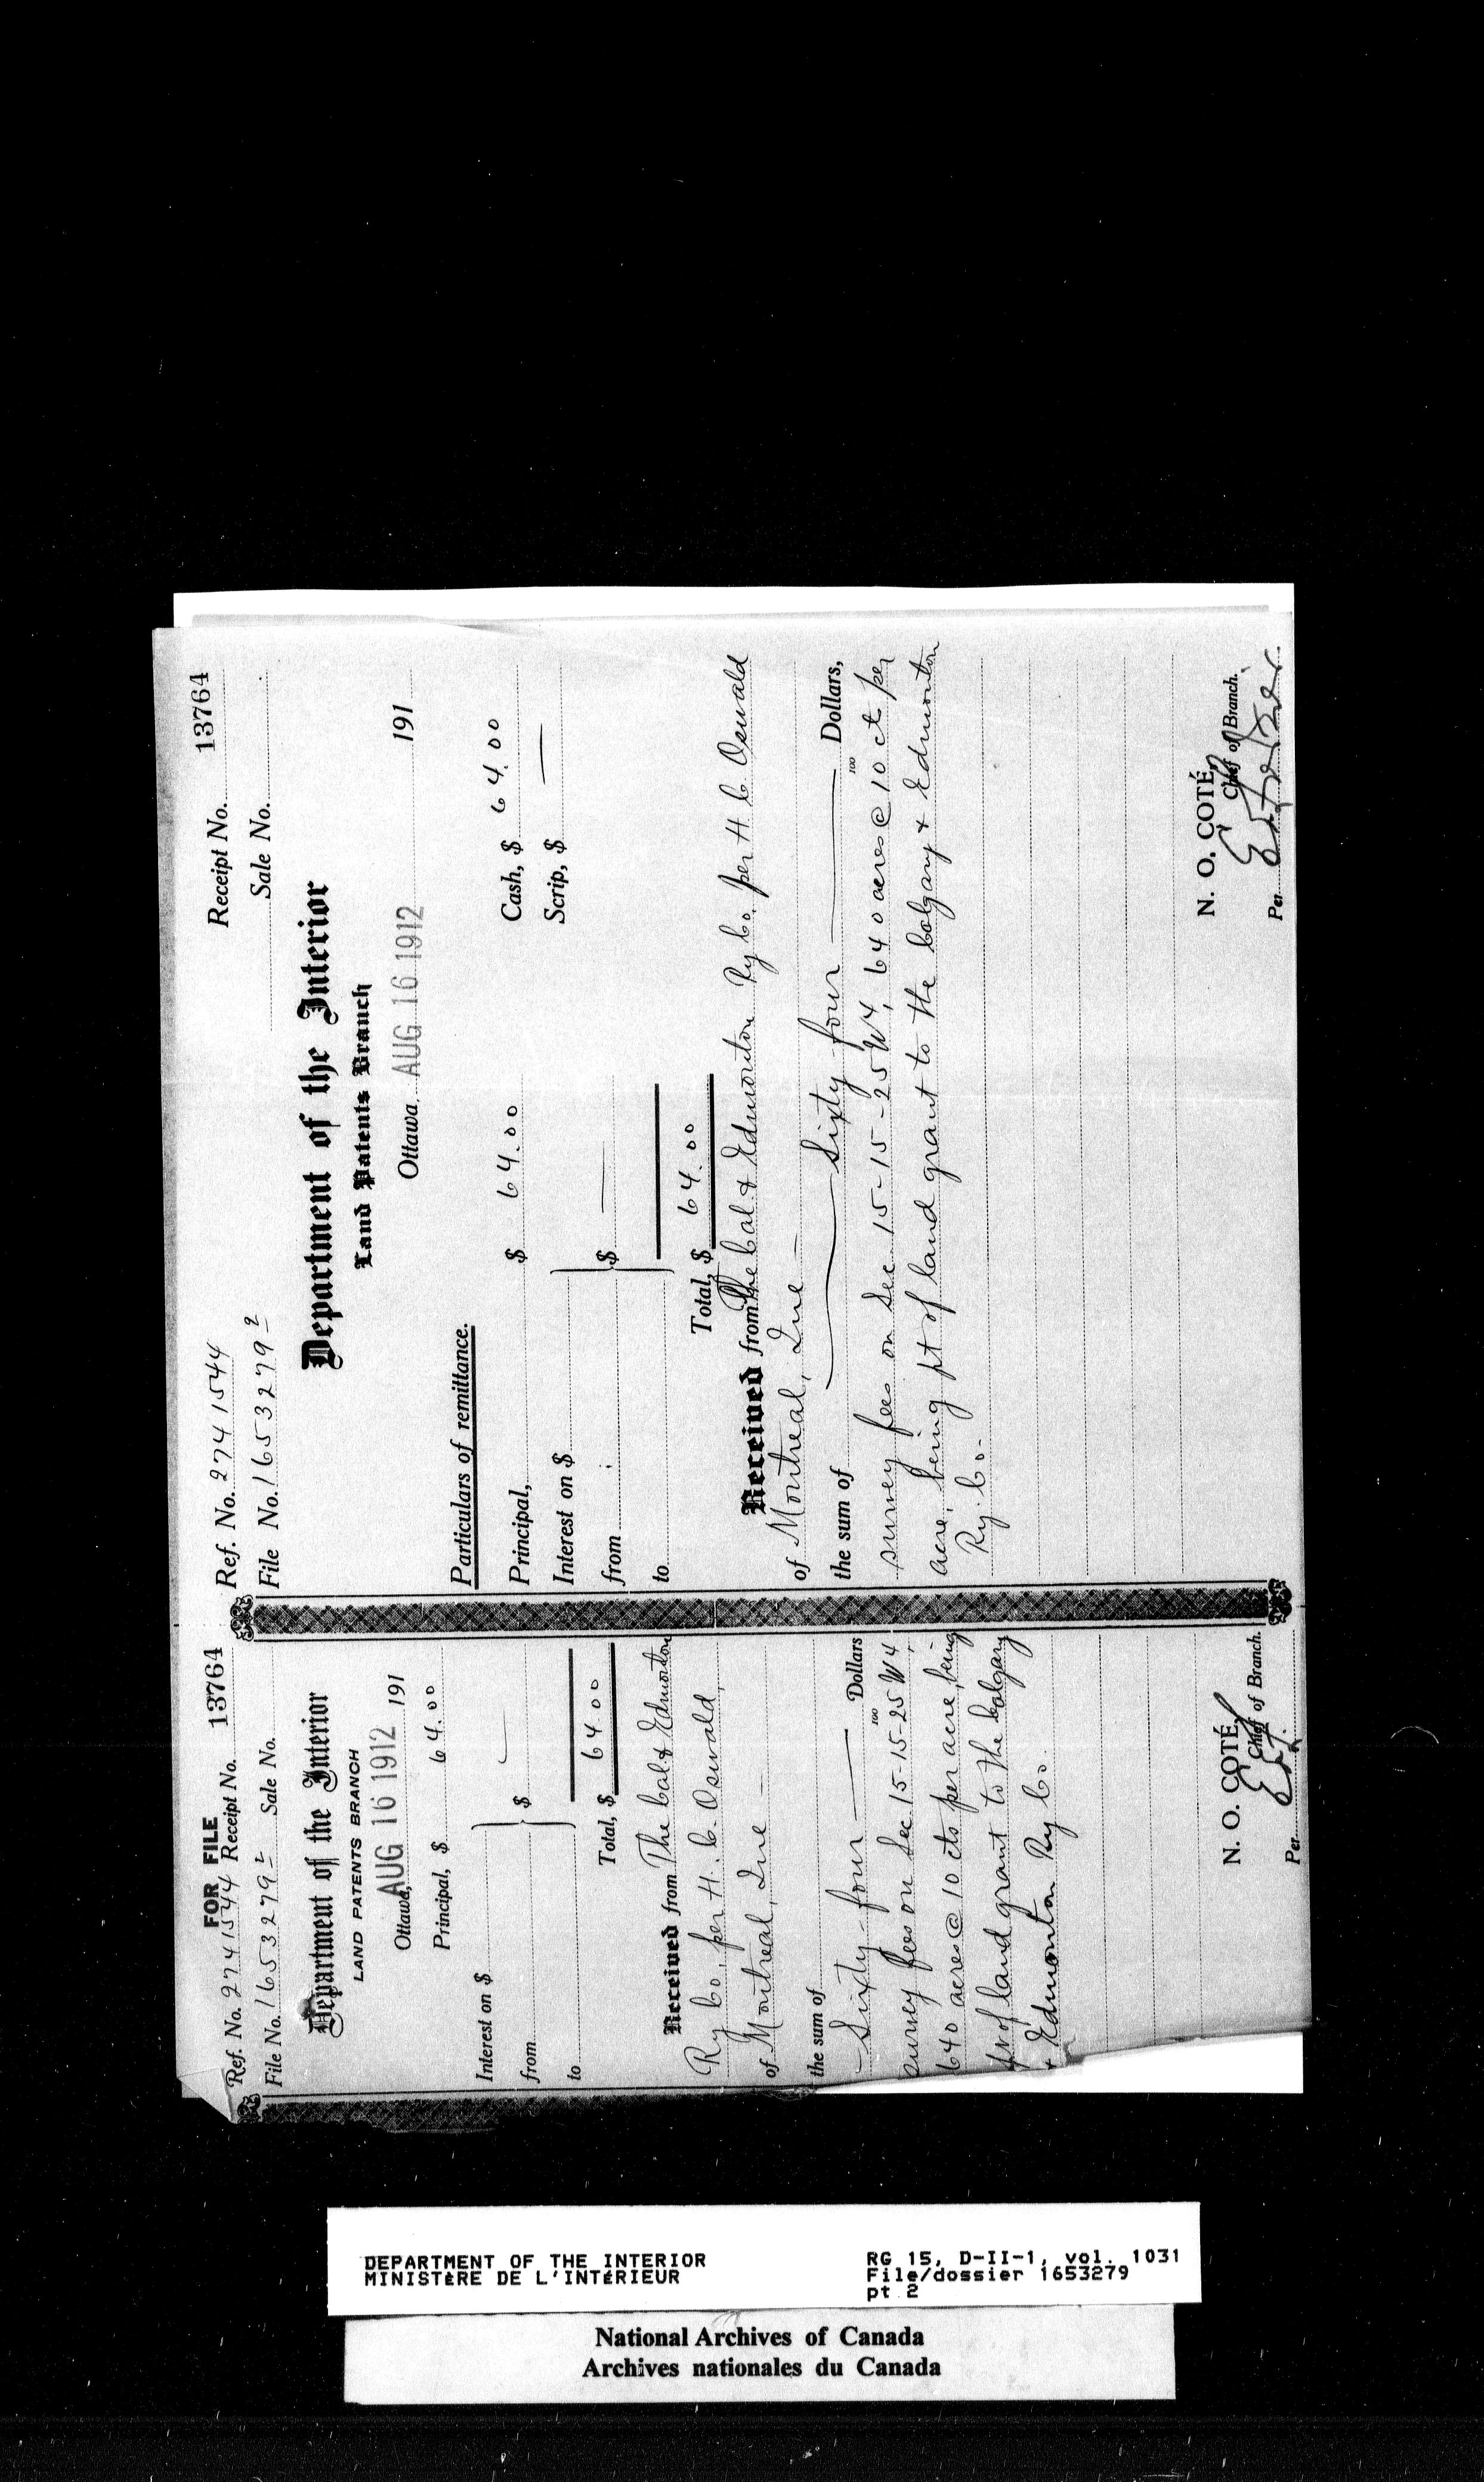 FOR FILE
Ref. No. 2741544 Receipt No. 13764
File No. 1653279 2 Sale No.
Department of the Interior
LAND PATENTS BRANCH
Ottawa, AUG 16 1912 191
Principal, $ 64.00
Interest on $
from $ —
to
Total, $ 64.00
Received from The Cal & Edmonton
Ry Co, per H. C. Oswald,
of Montreal, Que —
the sum of
— Sixty-four — 100 Dollars
survey fees on Sec 15-15-25 W4,
640 acres @ 10 cts per acre, being
pt of land grant to the Calgary
& Edmonton Ry Co.
N. O. COTÉ,
Chief of Branch.
Per
Ref. No. 2741544 Receipt No. 13764
File No. 1653279 2 Sale No.
Department of the Interior
Land Patents Branch
Ottawa, AUG 16 1912 191
Particulars of remittance.
Principal, $ 64.00 Cash, $ 64.00
Interest on $ Scrip, $ —
from $ —
to
Total, $ 64.00
Received from The Cal & Edmonton Ry Co. per H C Oswald
of Montreal, Que —
the sum of — Sixty-four — 100 Dollars,
survey fees on Sec. 15-15-25 W4, 640 acres @ 10 ct per
acre, being pt of land grant to the Calgary & Edmonton
Ry. Co.
N. O. COTÉ,
Chief of Branch.
Per
DEPARTMENT OF THE INTERIOR
MINISTÈRE DE L'INTÉRIEUR
RG 15, D-II-1, vol. 1031
File/dossier 1653279
pt 2
National Archives of Canada
Archives nationales du Canada